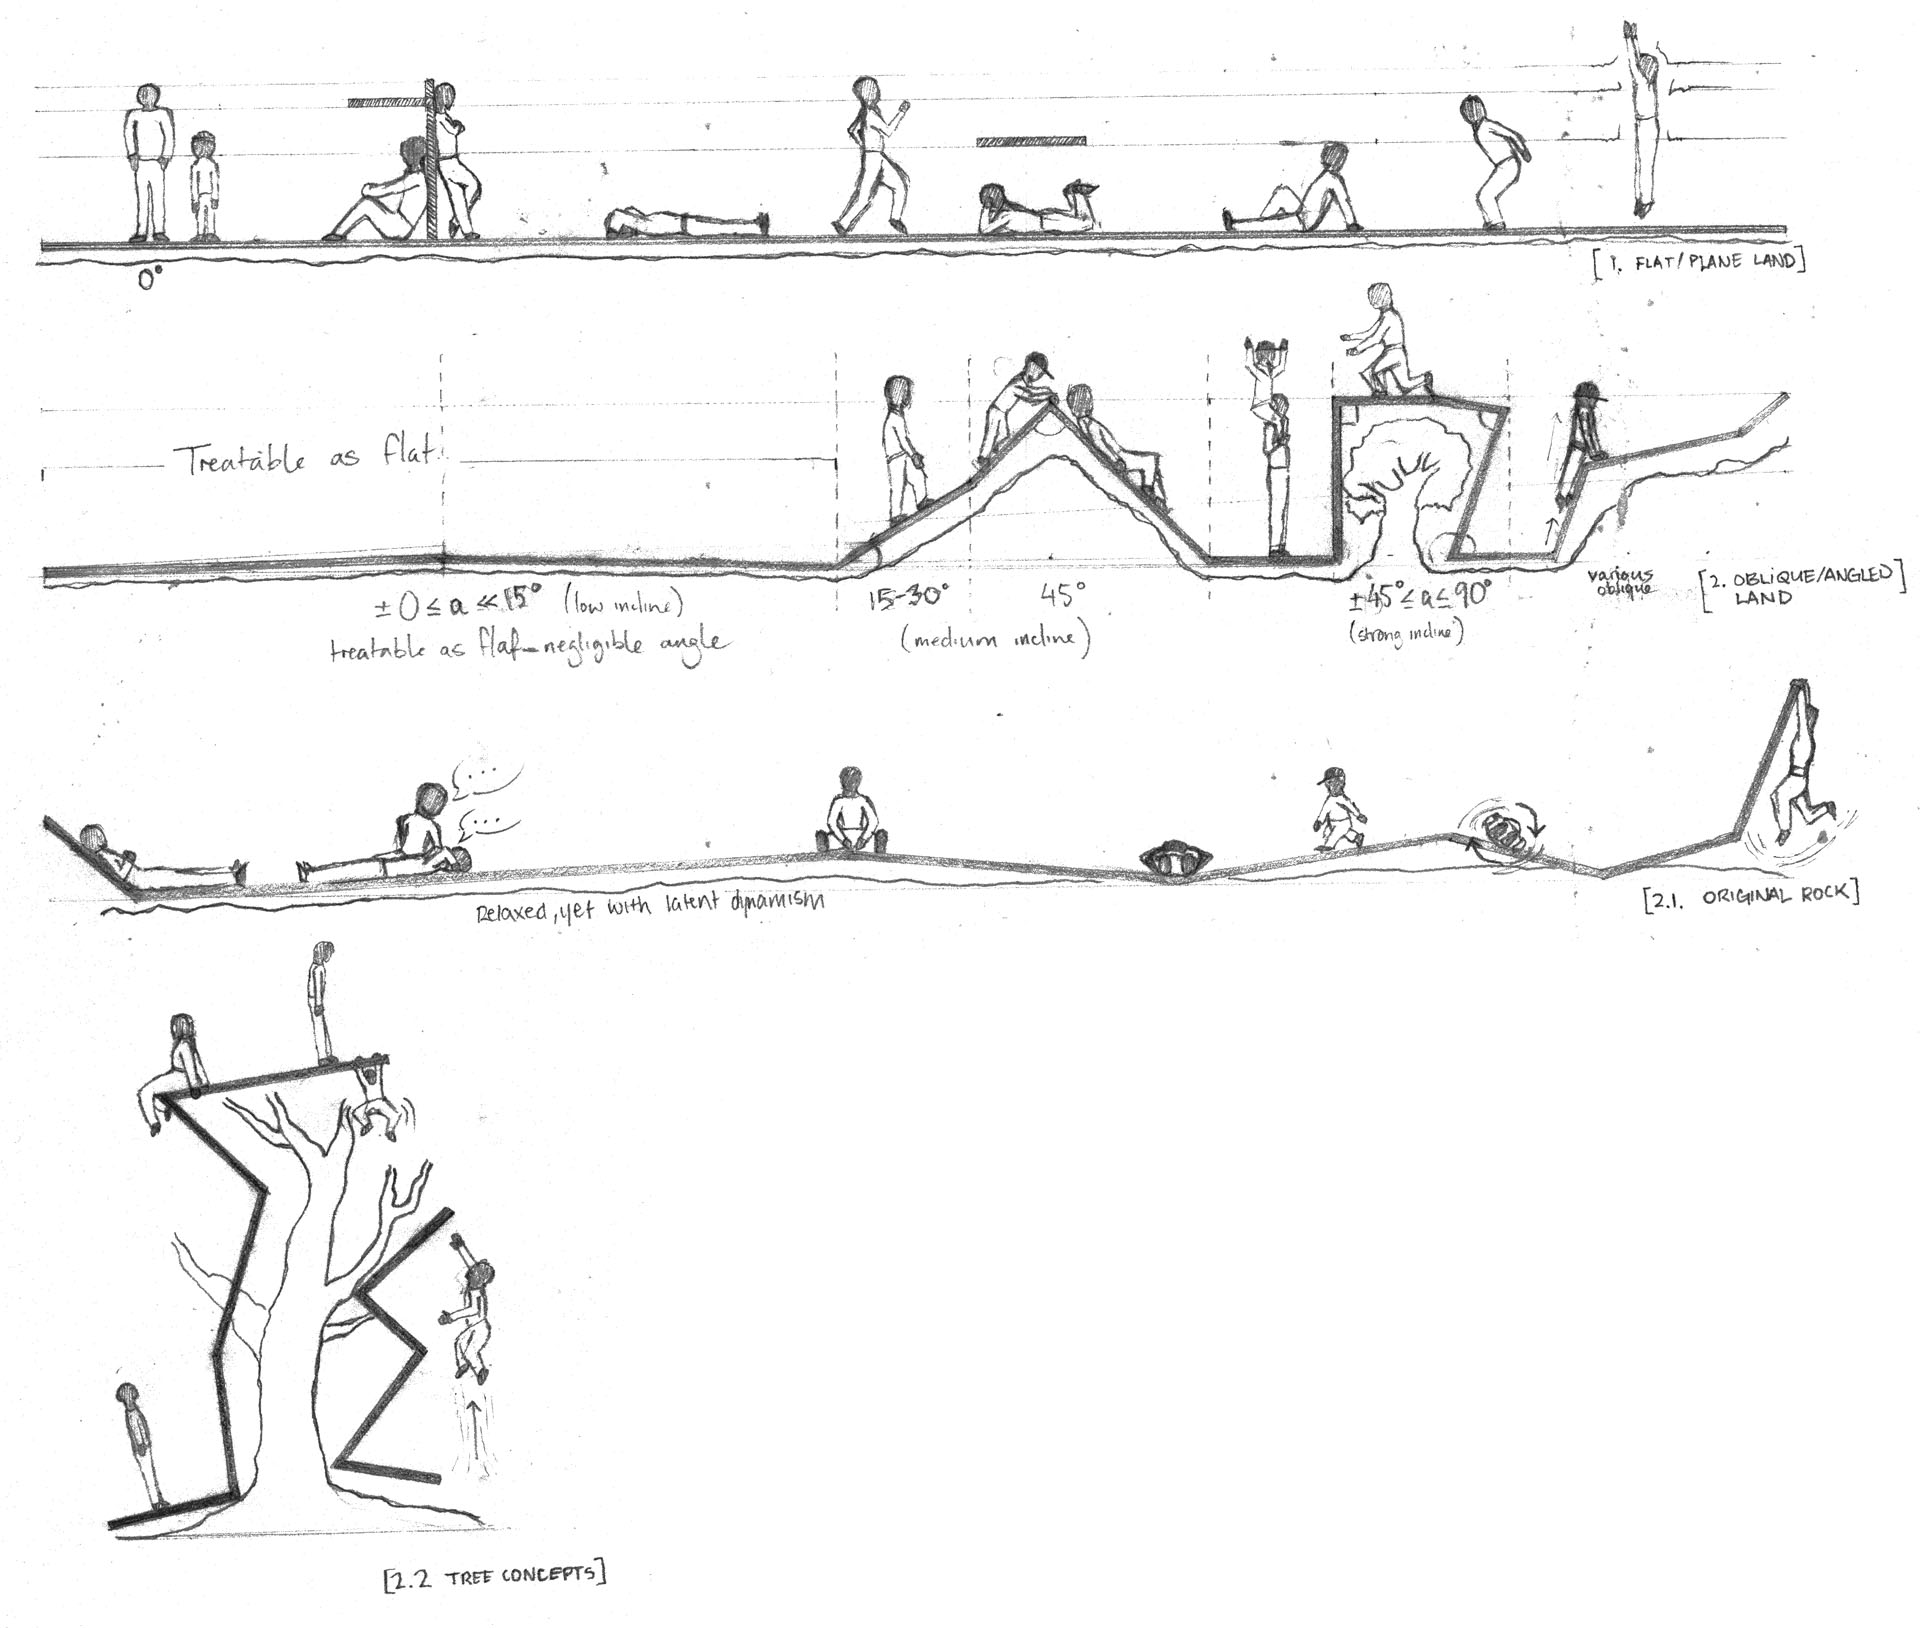 0°
[1. FLAT/PLANE LAND]
Treatable as flat.
± 0 ≤ a ≪ 15° (low incline)
treatable as flat-negligible angle
15-30°
45°
(medium incline)
±45° ≤ a ≤ 90°
(strong incline)
various
oblique
[2. OBLIQUE/ANGLED]
LAND
...
...
Relaxed, yet with latent dynamism
[2.1. ORIGINAL ROCK]
[2.2 TREE CONCEPTS]